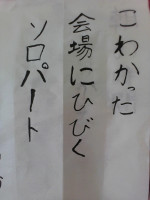 こわかった
会場にひびく
ソロパート